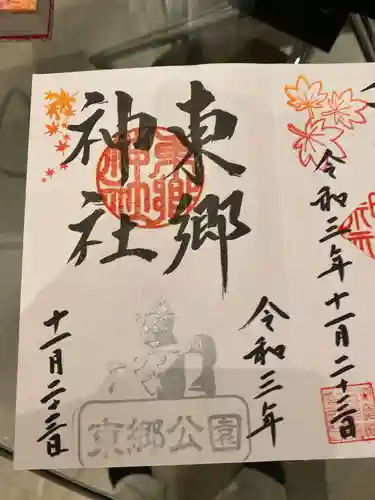 令和三年十一月二十三日
東郷
神社
東郷
神社
令和三年
十一月二十三日
東郷公園